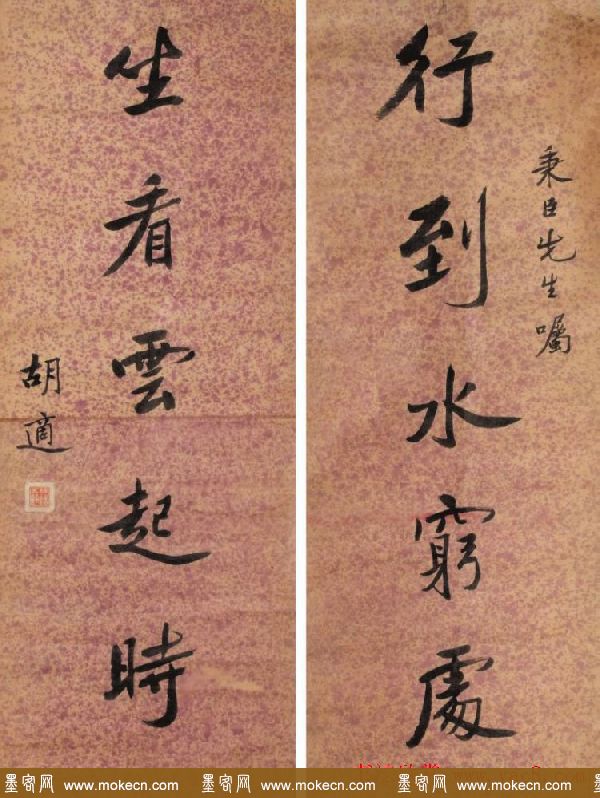 秉臣先生嘱
行到水窮處
坐看雲起時
胡適
墨客网 www.mokecn.com 墨客网 www.mokecn.com 墨客网 www.mokecn.com